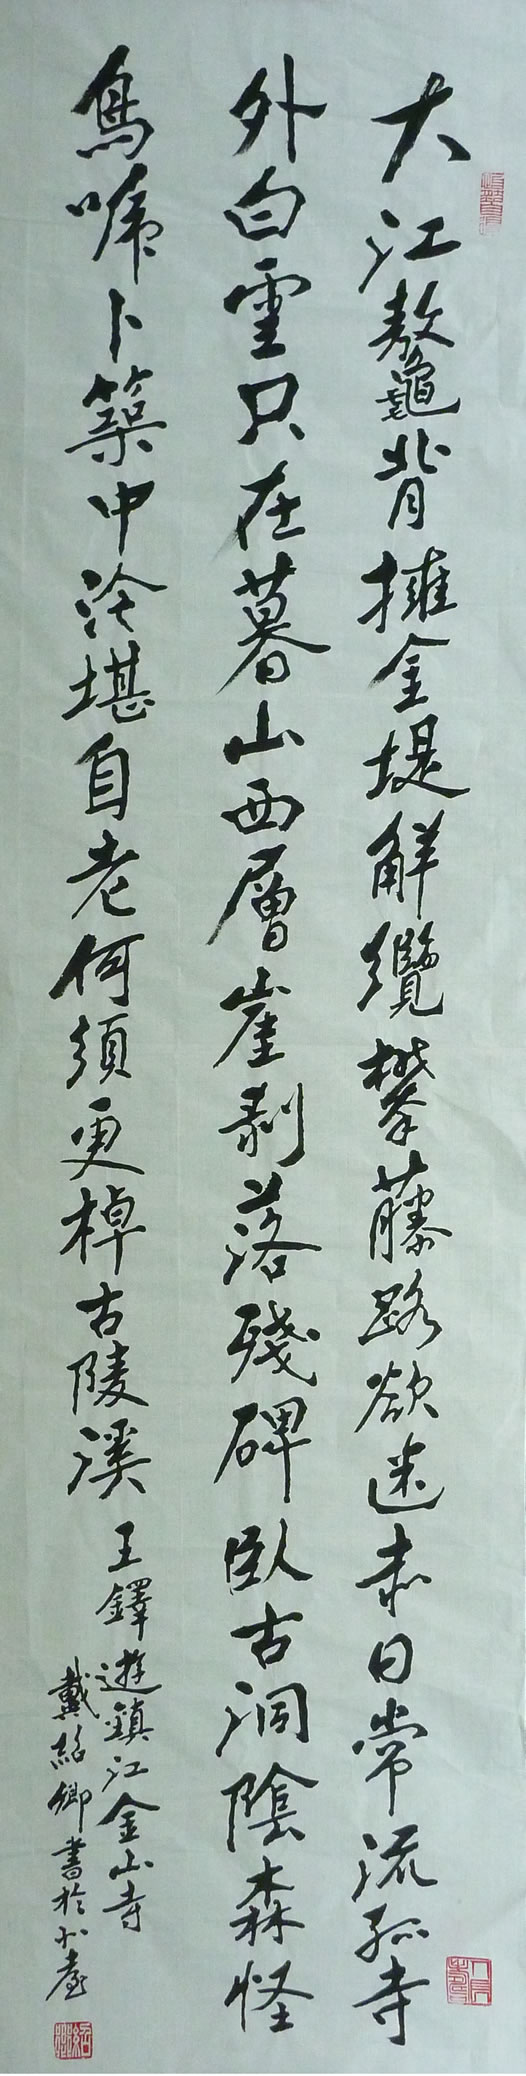 大江鰲背擁金堤解纜攀藤路欲迷赤日常流孤寺
外白雲只在暮山西層崖剥落殘碑臥古洞陰森怪
鳥啼卜築中泠堪自老何須更棹古陵溪
王鐸遊鎮江金山寺
戴紹卿書於小臺